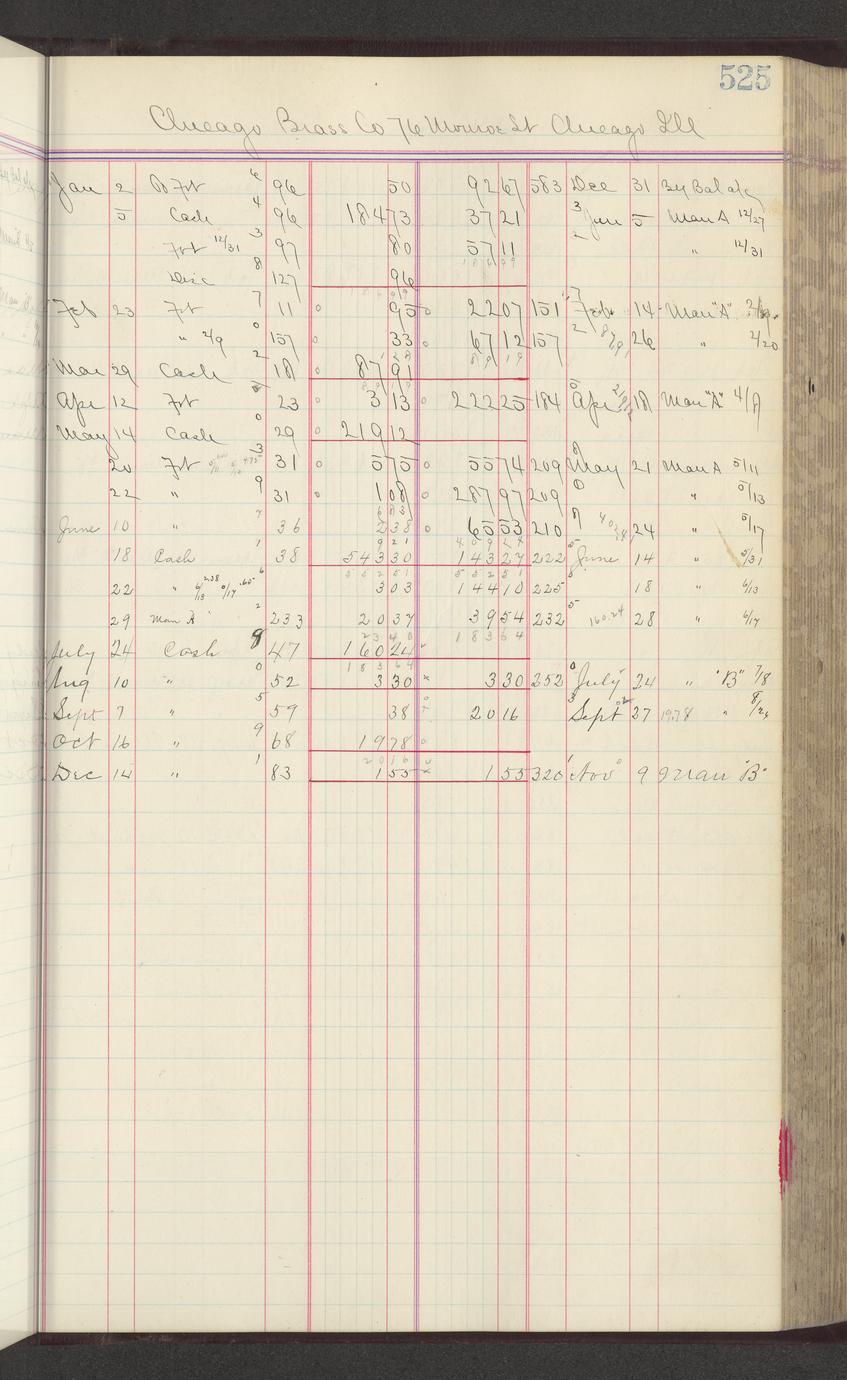 525
Chicago Brass Co 76 Monroe St Chicago Ill
Jan 2 Frt 96 50 92 67 583 Dec 31 By Bal
5 Cash 96 184 73 37 21 Jan 5 Man A 12/27
Frt 12/31 97 80 57 11 " 12/31
Disc 127 96
Feb 23 Frt 11 95 22 07 151 Feb 14 Man "A"
" 2/9 157 33 67 12 157 26 " 2/20
Mar 29 Cash 18 87 91
Apr 12 Frt 23 3 13 222 25 184 Apr 18 Man "A" 4/8
May 14 Cash 29 219 12
20 Frt 31 5 75 55 74 209 May 21 Man A 5/11
22 " 31 1 08 287 97 209 " 5/13
June 10 " 36 2 38 65 53 210 24 " 5/17
18 Cash 38 543 30 143 27 222 June 14 " 5/31
22 " 3 03 144 10 225 18 " 6/13
29 Man A 233 20 37 39 54 232 160.24 28 " 6/17
July 24 Cash 47 160 24
Aug 10 " 52 3 30 3 30 252 July 24 " "B" 7/8
Sept 7 " 59 38 20 16 Sept 27 19.78 " 8/24
Oct 16 " 68 19 78
Dec 14 " 83 1 55 1 55 320 Nov 9 Man "B"